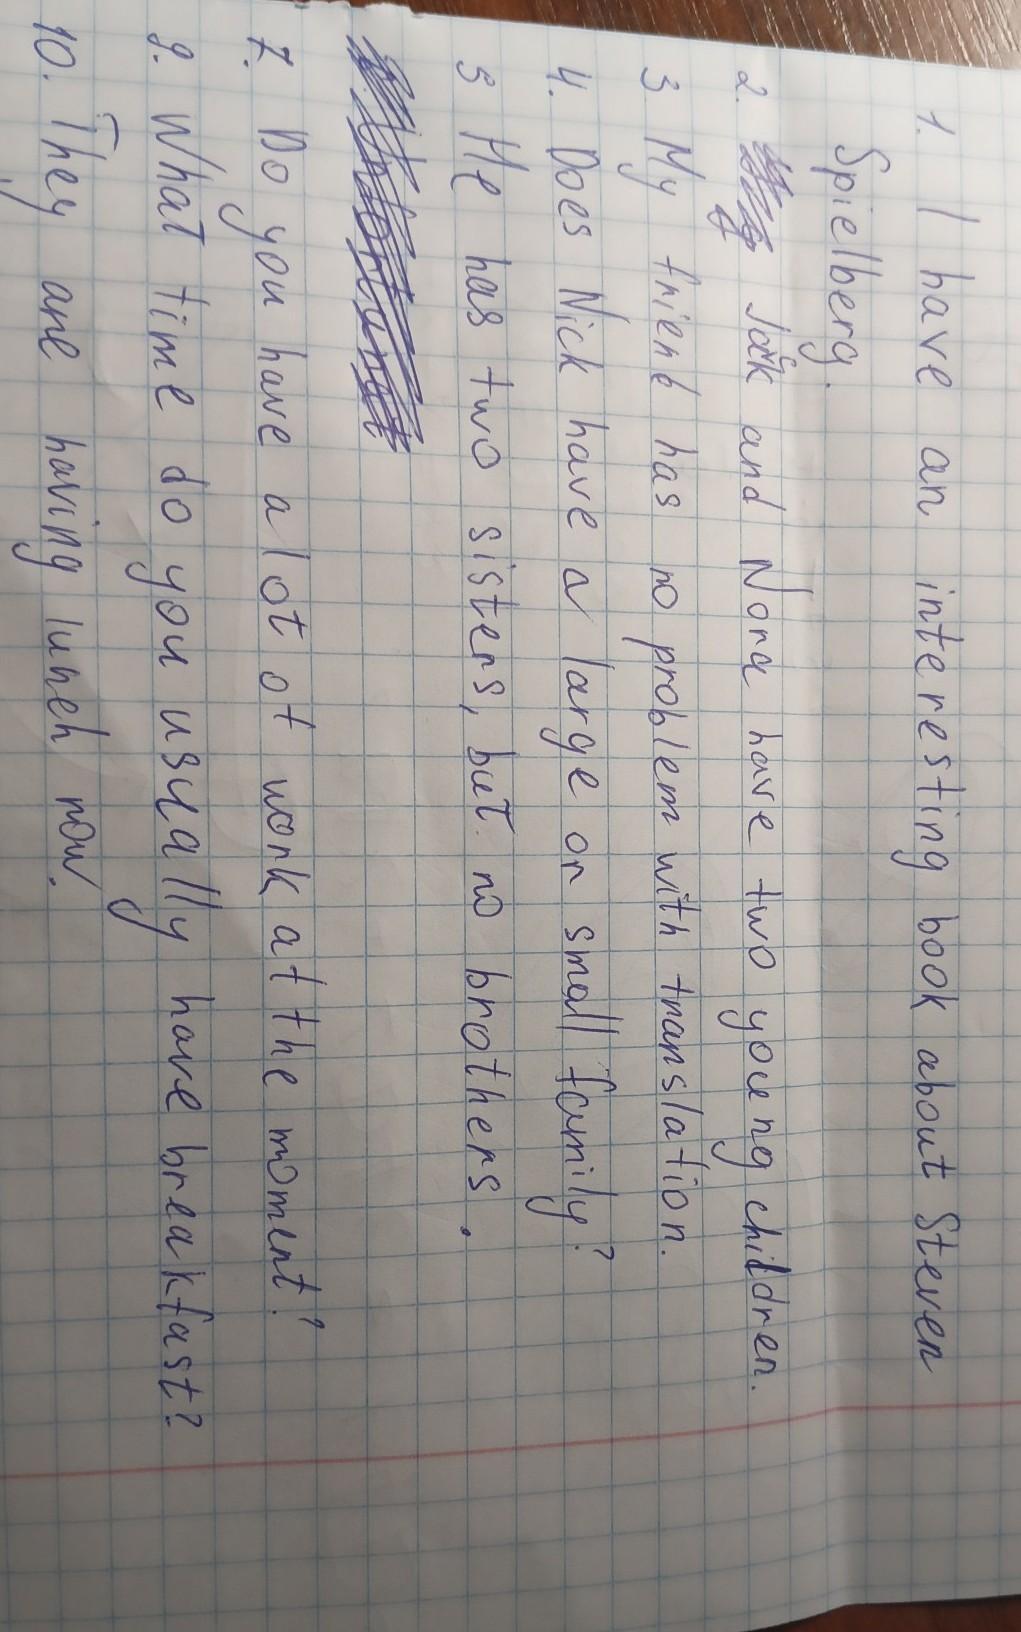 1. I have an interesting book about Steven
Spielberg.
2. Jack and Nora have two young children.
3 My friend has no problem with translation.
4. Does Nick have a large or small family?
5 He has two sisters, but no brothers.
7. Do you have a lot of work at the moment?
9. What time do you usually have breakfast?
10. They are having lunch now.